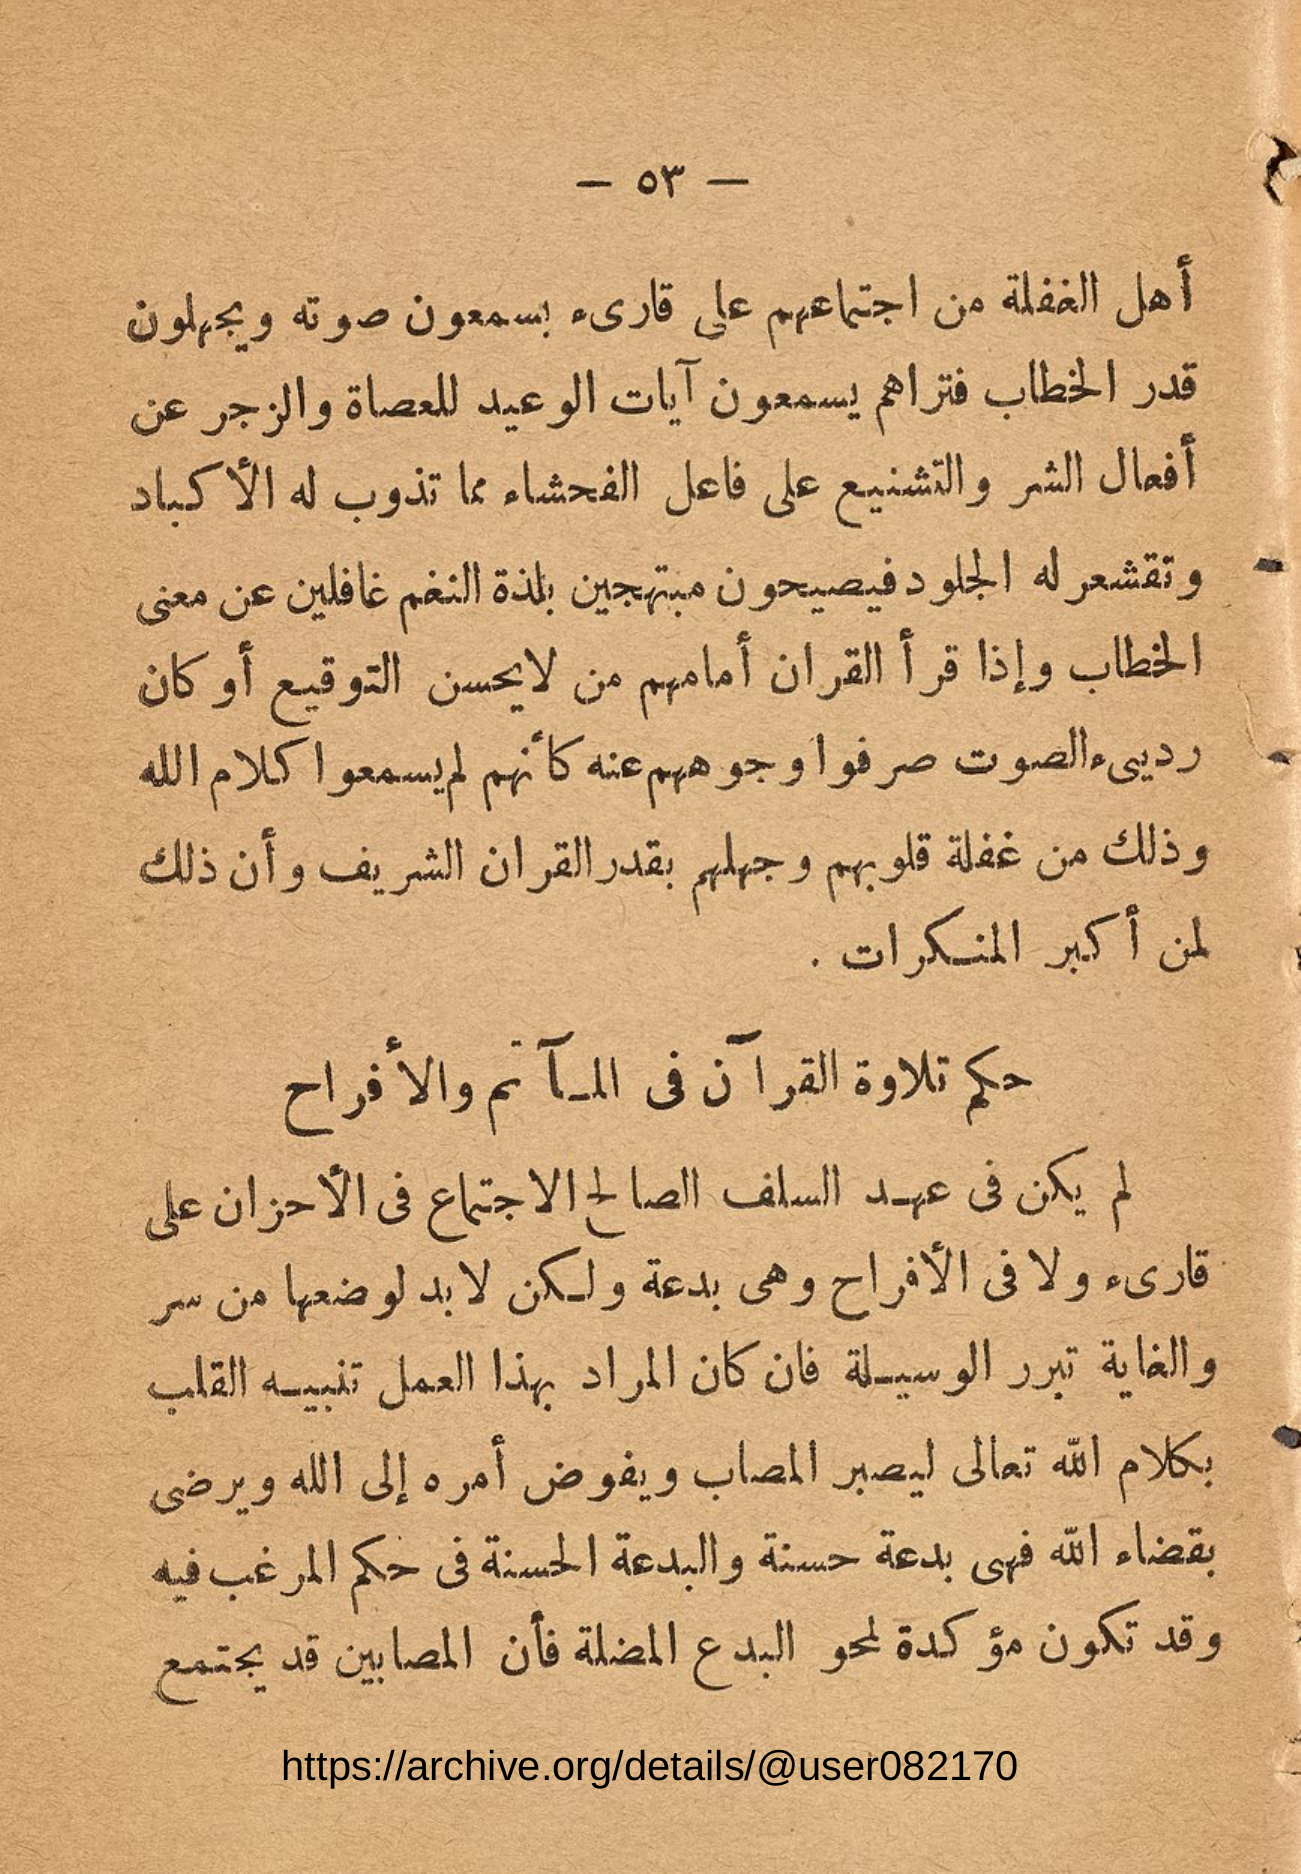 — ٥٣ —
أهل الغفلة من اجتماعهم على قارىء بسمعون صوته ويجهلون
قدر الخطاب فتراهم يسمعون آيات الوعيد للعصاة والزجر عن
أفعال الشر والتشنيع على فاعل الفحشاء مما تذوب له الأكباد
وتقشعر له الجلود فيصيحون مبتهجين بلذة النغم غافلين عن معنى
الخطاب وإذا قرأ القران أمامهم من لايحسن التوقيع أو كان
رديىء الصوت صرفوا وجوههم عنه كأنهم لم يسمعوا كلام الله
وذلك من غفلة قلوبهم وجهلهم بقدر القران الشريف وأن ذلك
لمن أكبر المنكرات .
حكم تلاوة القرآن فى المآتم والأفراح
لم يكن فى عهد السلف الصالح الاجتماع فى الأحزان على
قارىء ولا فى الأفراح وهى بدعة ولكن لابد لوضعها من سر
والغاية تبرر الوسيلة فان كان المراد بهذا العمل تنبيه القلب
بكلام الله تعالى ليصبر المصاب ويفوض أمره إلى الله ويرضى
بقضاء الله فهى بدعة حسنة والبدعة الحسنة فى حكم المرغب فيه
وقد تكون مؤكدة لمحو البدع المضلة فأن المصابين قد يجتمع
https://archive.org/details/@user082170